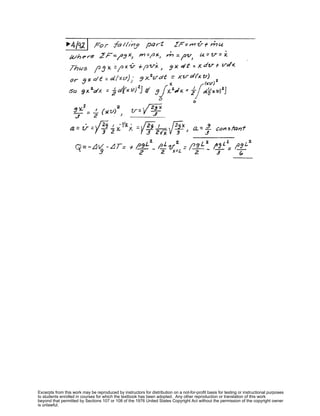 ▶4/92 For falling part ΣF = mv̇ + ṁu
where ΣF = ρgx, m = ρx, ṁ = ρv, u = v = ẋ
Thus ρgx = ρxv̇ + ρvẋ, gx dt = x dv + v dx
or gx dt = d(xv); gx²v dt = xv d(xv)
so gx²dx = ½ d[(xv)²] & g∫₀ˣ x²dx = ½∫₀^(xv)² d[(xv)²]
gx³/3 = ½ (xv)², v = √(2gx/3)
a = v̇ = √(2g/3) ½ x^(-1/2) ẋ = √(2g/3) 1/(2√x) √(2gx/3), a = g/3 constant
Q = -ΔVg - ΔT = + ρgL²/2 - ρL/2 v²x=L = ρgL²/2 - ρgL²/3 = ρgL²/6
Excerpts from this work may be reproduced by instructors for distribution on a not-for-profit basis for testing or instructional purposes
to students enrolled in courses for which the textbook has been adopted. Any other reproduction or translation of this work
beyond that permitted by Sections 107 or 108 of the 1976 United States Copyright Act without the permission of the copyright owner
is unlawful.